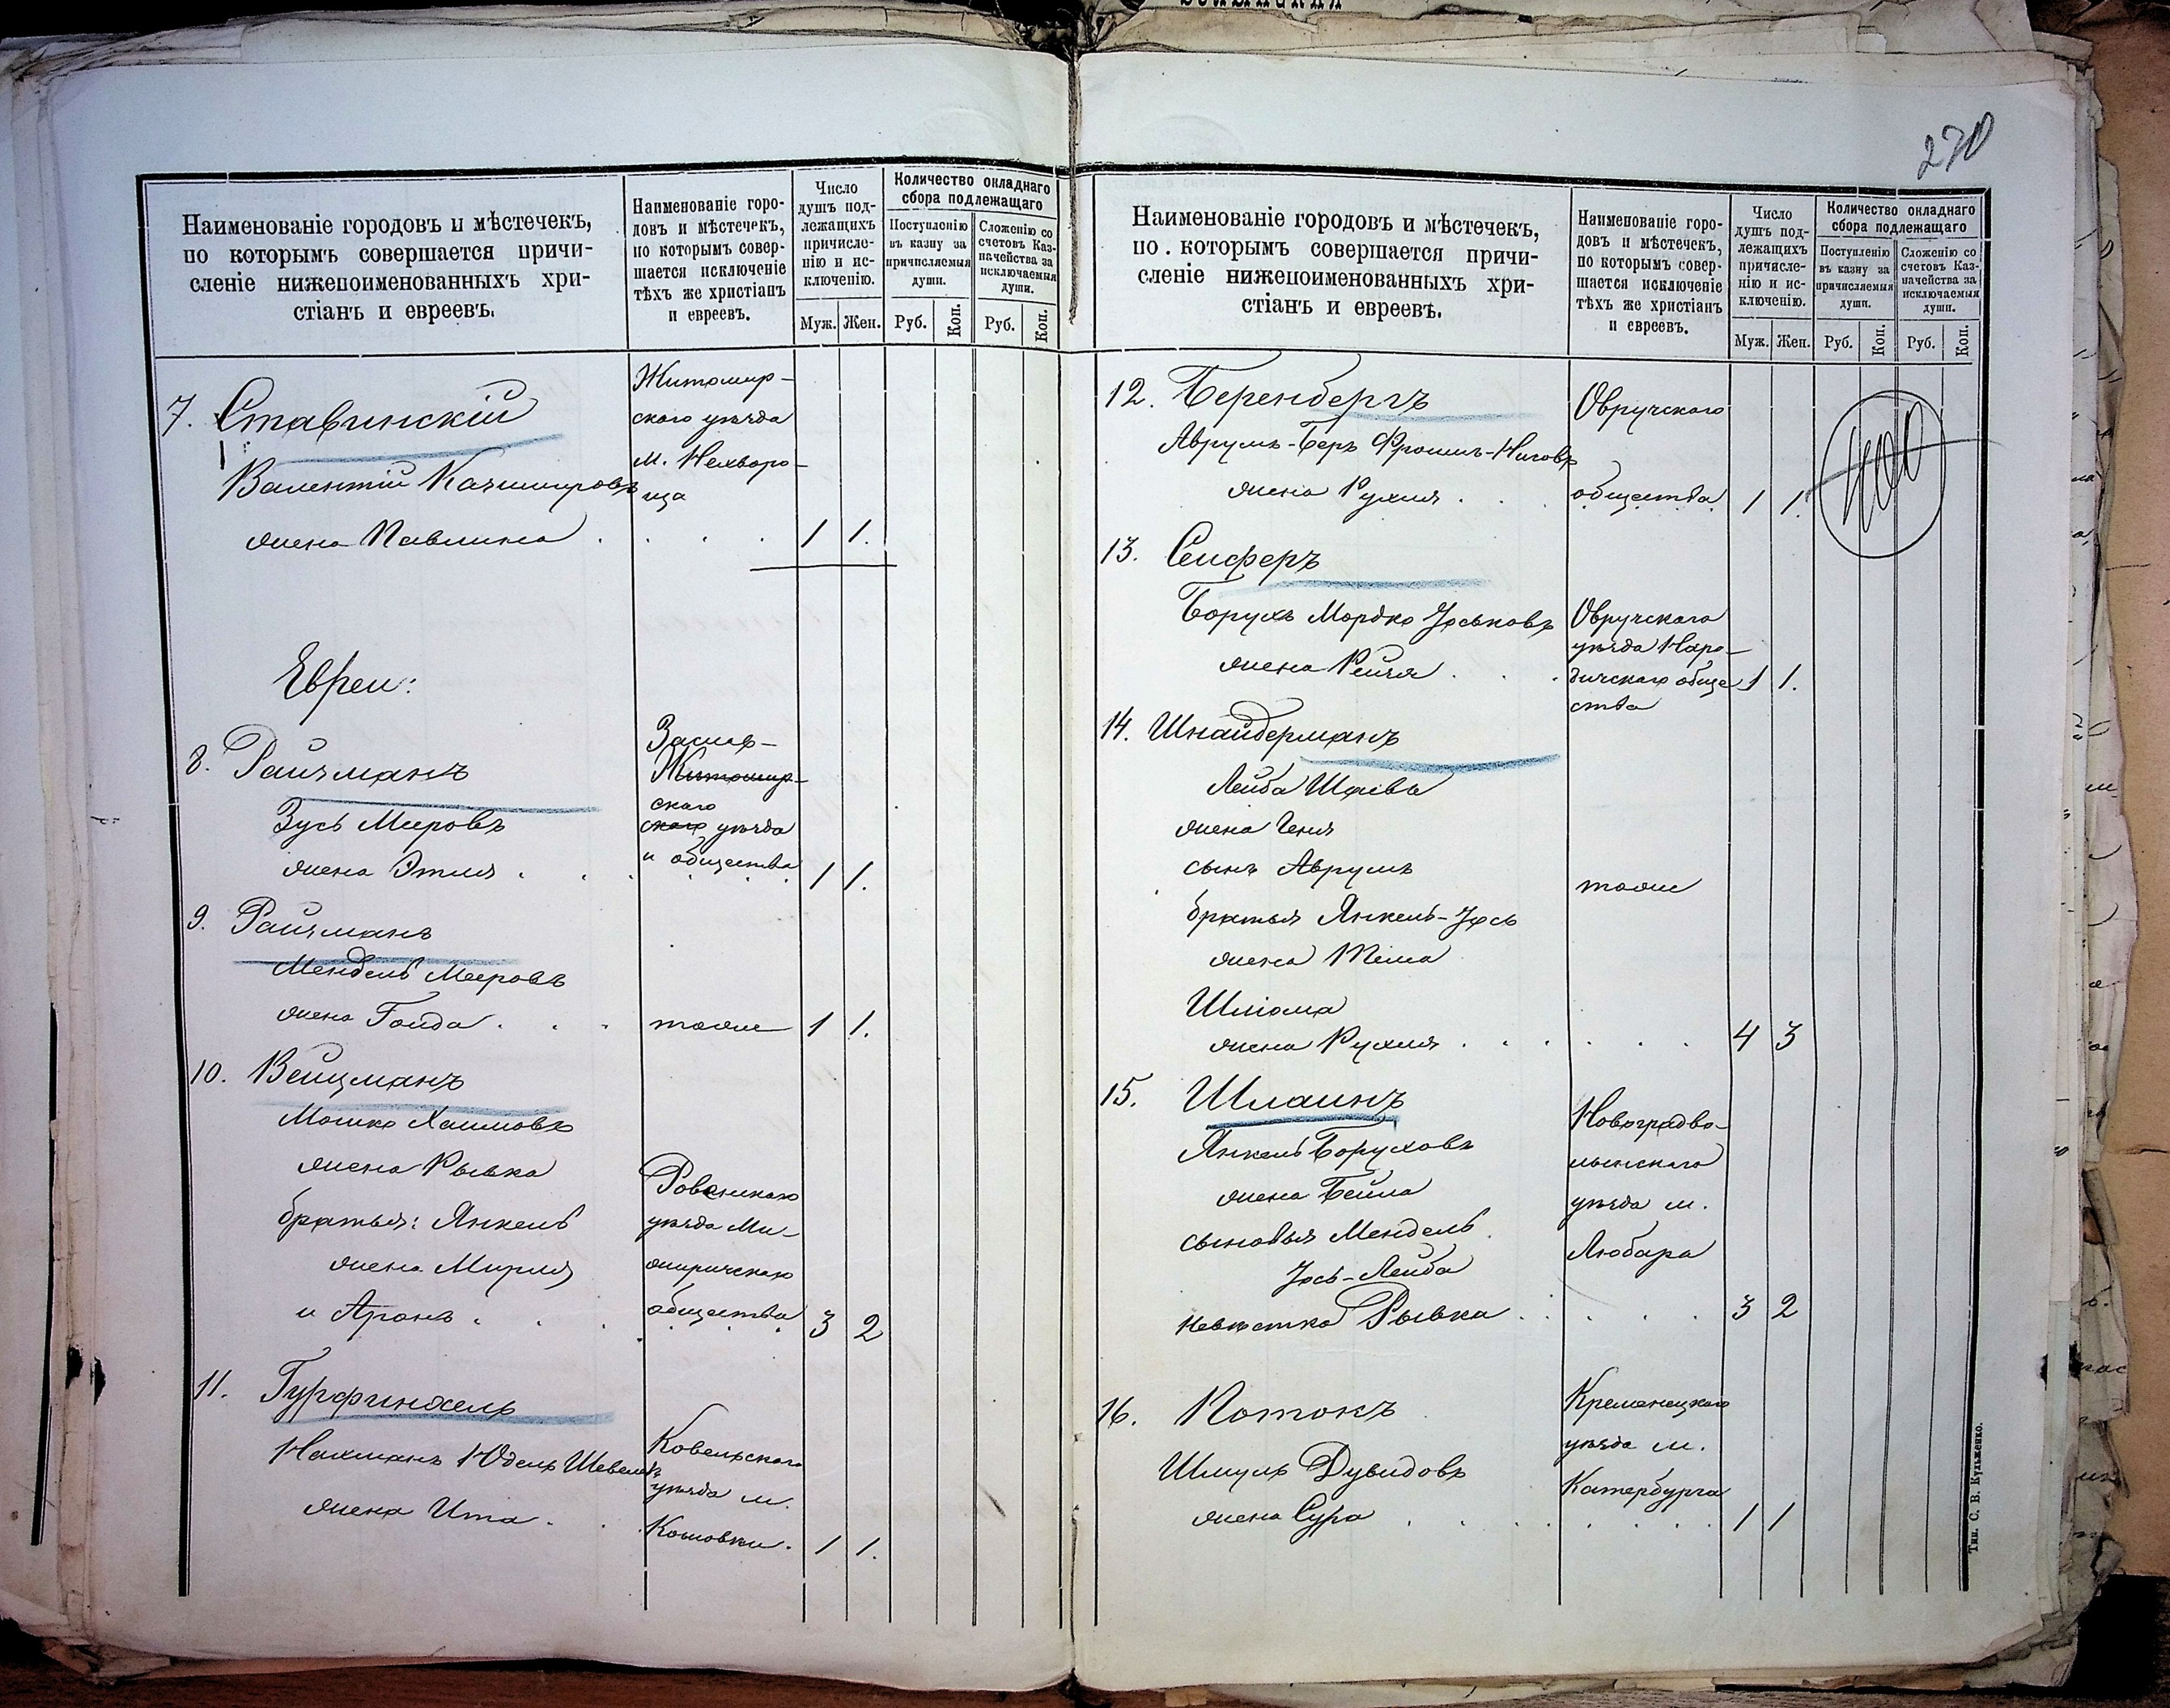 270
Наименованіе городовъ и мѣстечекъ,
по которымъ совершается причи-
сленіе нижепоименованныхъ хри-
стіанъ и евреевъ.
Наименованіе горо-
довъ и мѣстечекъ,
по которымъ совер-
шается исключеніе
тѣхъ же христіанъ
и евреевъ.
Число
душъ под-
лежащихъ
причисле-
нію и ис-
ключенію.
Муж. Жен.
Количество окладнаго
сбора подлежащаго
Поступленію
въ казну за
причисляемыя
души.
Сложенію со
счетовъ Каз-
начейства за
исключаемыя
души.
Руб. Коп. Руб. Коп.
7. Ставинскій
Валентій Казимировъ
жена Павлина
Житомир-
скаго уѣзда
м. Нехворо-
ща
1 1.
Евреи:
8. Райзманъ
Зусь Мееровъ
жена Этля
Заслав-
Житомир-
скаго
скаго уѣзда
и общества
1 1.
9. Райзманъ
Мендель Мееровъ
жена Голда
тоже 1 1.
10. Вейцманъ
Мошко Хаимовъ
жена Рывка
братья: Янкель
жена Мирля
и Аронъ
Ровенскаго
уѣзда Ме-
жиричскаго
общества 3 2
11. Гурфинкель
Нахманъ Юдель Шевелевъ
жена Ита
Ковельскаго
уѣзда м.
1 1.
Наименованіе городовъ и мѣстечекъ,
по которымъ совершается причи-
сленіе нижепоименованныхъ хри-
стіанъ и евреевъ.
Наименованіе горо-
довъ и мѣстечекъ,
по которымъ совер-
шается исключеніе
тѣхъ же христіанъ
и евреевъ.
Число
душъ под-
лежащихъ
причисле-
нію и ис-
ключенію.
Муж. Жен.
Количество окладнаго
сбора подлежащаго
Поступленію
въ казну за
причисляемыя
души.
Сложенію со
счетовъ Каз-
начейства за
исключаемыя
души.
Руб. Коп. Руб. Коп.
12. Беренбергъ
Аврумъ-Беръ
жена Рухля
Овручскаго
общества 1 1.
13. Сейферъ
Борухъ Мордко Іоськовъ
жена Рейзя
Овручскаго
уѣзда Наро-
дичскаго обще
ства
1 1.
14. Шнайдерманъ
Лейба
жена Геня
сынъ Аврумъ
братья Янкель-Іось
жена
Шліома
жена Рухля
тоже
4 3
15. Шлаинъ
Янкель Боруховъ
жена Бейла
сыновья Мендель
Іось-Лейба
невѣстка Рывка
Новоградво-
лынскаго
уѣзда м.
Любара
3 2
16. Потокъ
Шмуль Дувидовъ
жена Сура
Кременецкаго
уѣзда м.
Катербурга
1 1
Тип. С. В. Кульженко.